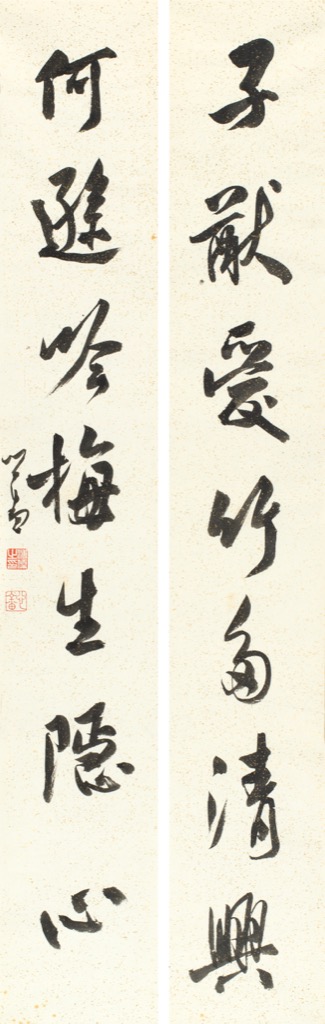 子猷愛竹多清興
何遜吟梅生隱心
心畬